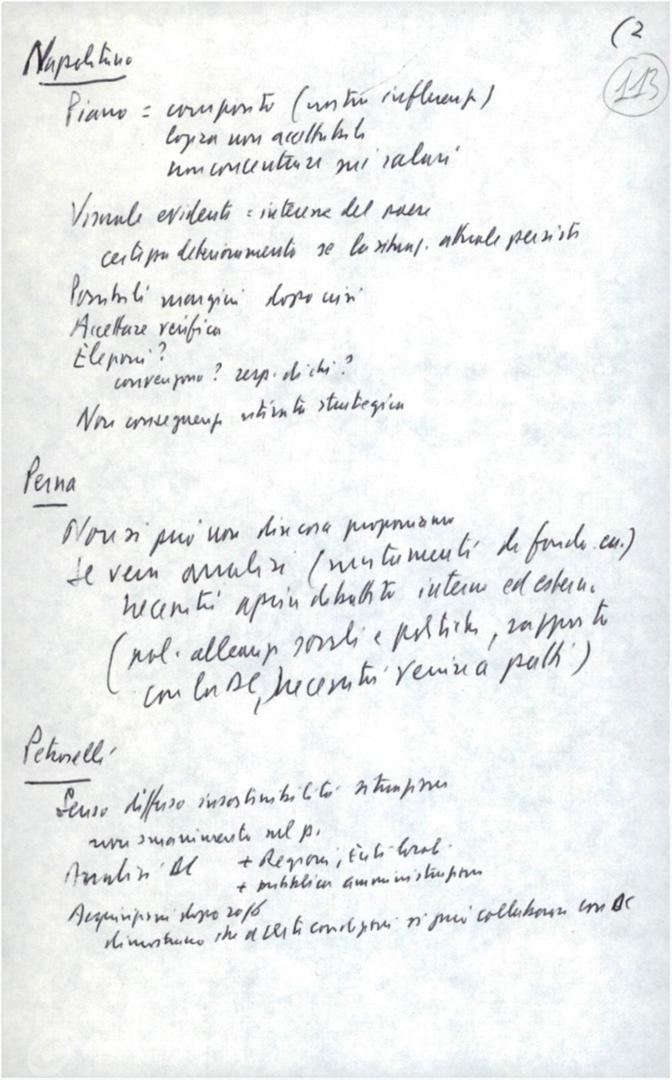 (2
113
Napolitano
Piano = composito (nostra influenza)
logica non accettabile
non concentrare sui salari
Visuale evidente = interesse del paese
certi più deterioramento se la situaz. attuale persiste
Possibili margini dopo crisi
Accettare verifica
Elezioni?
convengono? resp. di chi?
Non conseguenza ritirata strategica
Perna
Non si può non dire cosa proponiamo
Se vera analisi (mutamenti di fondo ecc.)
necessità aprire dibattito interno ed esterno
(pol. alleanze sociali e politiche, rapporto
con la DC, necessità venire a patti)
Petroselli
Senso diffuso insostenibilità situazione
non smarrimento nel p.
Analisi DC + Regioni, Enti locali
+ pubblica amministrazione
Acquisizioni dopo 20/6
dimostrano che a certe condizioni si può collaborare con DC